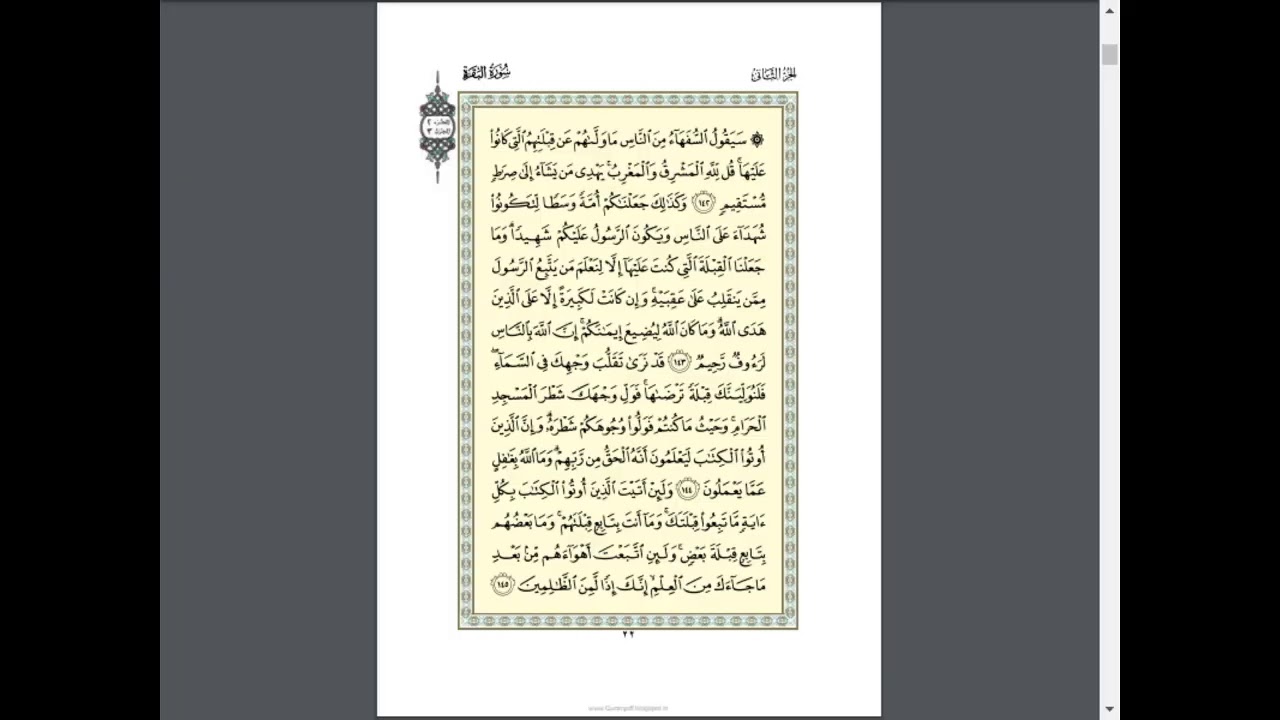 الجزء الثاني
سورة البقرة
الجزء ٢
الحزب ٣
۞ سَيَقُولُ ٱلسُّفَهَآءُ مِنَ ٱلنَّاسِ مَا وَلَّىٰهُمْ عَن قِبْلَتِهِمُ ٱلَّتِى كَانُوا۟
عَلَيْهَا ۚ قُل لِّلَّهِ ٱلْمَشْرِقُ وَٱلْمَغْرِبُ ۚ يَهْدِى مَن يَشَآءُ إِلَىٰ صِرَٰطٍ
مُّسْتَقِيمٍ ١٤٢ وَكَذَٰلِكَ جَعَلْنَٰكُمْ أُمَّةً وَسَطًا لِّتَكُونُوا۟
شُهَدَآءَ عَلَى ٱلنَّاسِ وَيَكُونَ ٱلرَّسُولُ عَلَيْكُمْ شَهِيدًا ۗ وَمَا
جَعَلْنَا ٱلْقِبْلَةَ ٱلَّتِى كُنتَ عَلَيْهَآ إِلَّا لِنَعْلَمَ مَن يَتَّبِعُ ٱلرَّسُولَ
مِمَّن يَنقَلِبُ عَلَىٰ عَقِبَيْهِ ۚ وَإِن كَانَتْ لَكَبِيرَةً إِلَّا عَلَى ٱلَّذِينَ
هَدَى ٱللَّهُ ۗ وَمَا كَانَ ٱللَّهُ لِيُضِيعَ إِيمَٰنَكُمْ ۚ إِنَّ ٱللَّهَ بِٱلنَّاسِ
لَرَءُوفٌ رَّحِيمٌ ١٤٣ قَدْ نَرَىٰ تَقَلُّبَ وَجْهِكَ فِى ٱلسَّمَآءِ ۖ
فَلَنُوَلِّيَنَّكَ قِبْلَةً تَرْضَىٰهَا ۚ فَوَلِّ وَجْهَكَ شَطْرَ ٱلْمَسْجِدِ
ٱلْحَرَامِ ۚ وَحَيْثُ مَا كُنتُمْ فَوَلُّوا۟ وُجُوهَكُمْ شَطْرَهُۥ ۗ وَإِنَّ ٱلَّذِينَ
أُوتُوا۟ ٱلْكِتَٰبَ لَيَعْلَمُونَ أَنَّهُ ٱلْحَقُّ مِن رَّبِّهِمْ ۗ وَمَا ٱللَّهُ بِغَٰفِلٍ
عَمَّا يَعْمَلُونَ ١٤٤ وَلَئِنْ أَتَيْتَ ٱلَّذِينَ أُوتُوا۟ ٱلْكِتَٰبَ بِكُلِّ
ءَايَةٍ مَّا تَبِعُوا۟ قِبْلَتَكَ ۚ وَمَآ أَنتَ بِتَابِعٍ قِبْلَتَهُمْ ۚ وَمَا بَعْضُهُم
بِتَابِعٍ قِبْلَةَ بَعْضٍ ۚ وَلَئِنِ ٱتَّبَعْتَ أَهْوَآءَهُم مِّنۢ بَعْدِ
مَا جَآءَكَ مِنَ ٱلْعِلْمِ ۙ إِنَّكَ إِذًا لَّمِنَ ٱلظَّٰلِمِينَ ١٤٥
٢٢
www.Quranpdf.blogspot.in